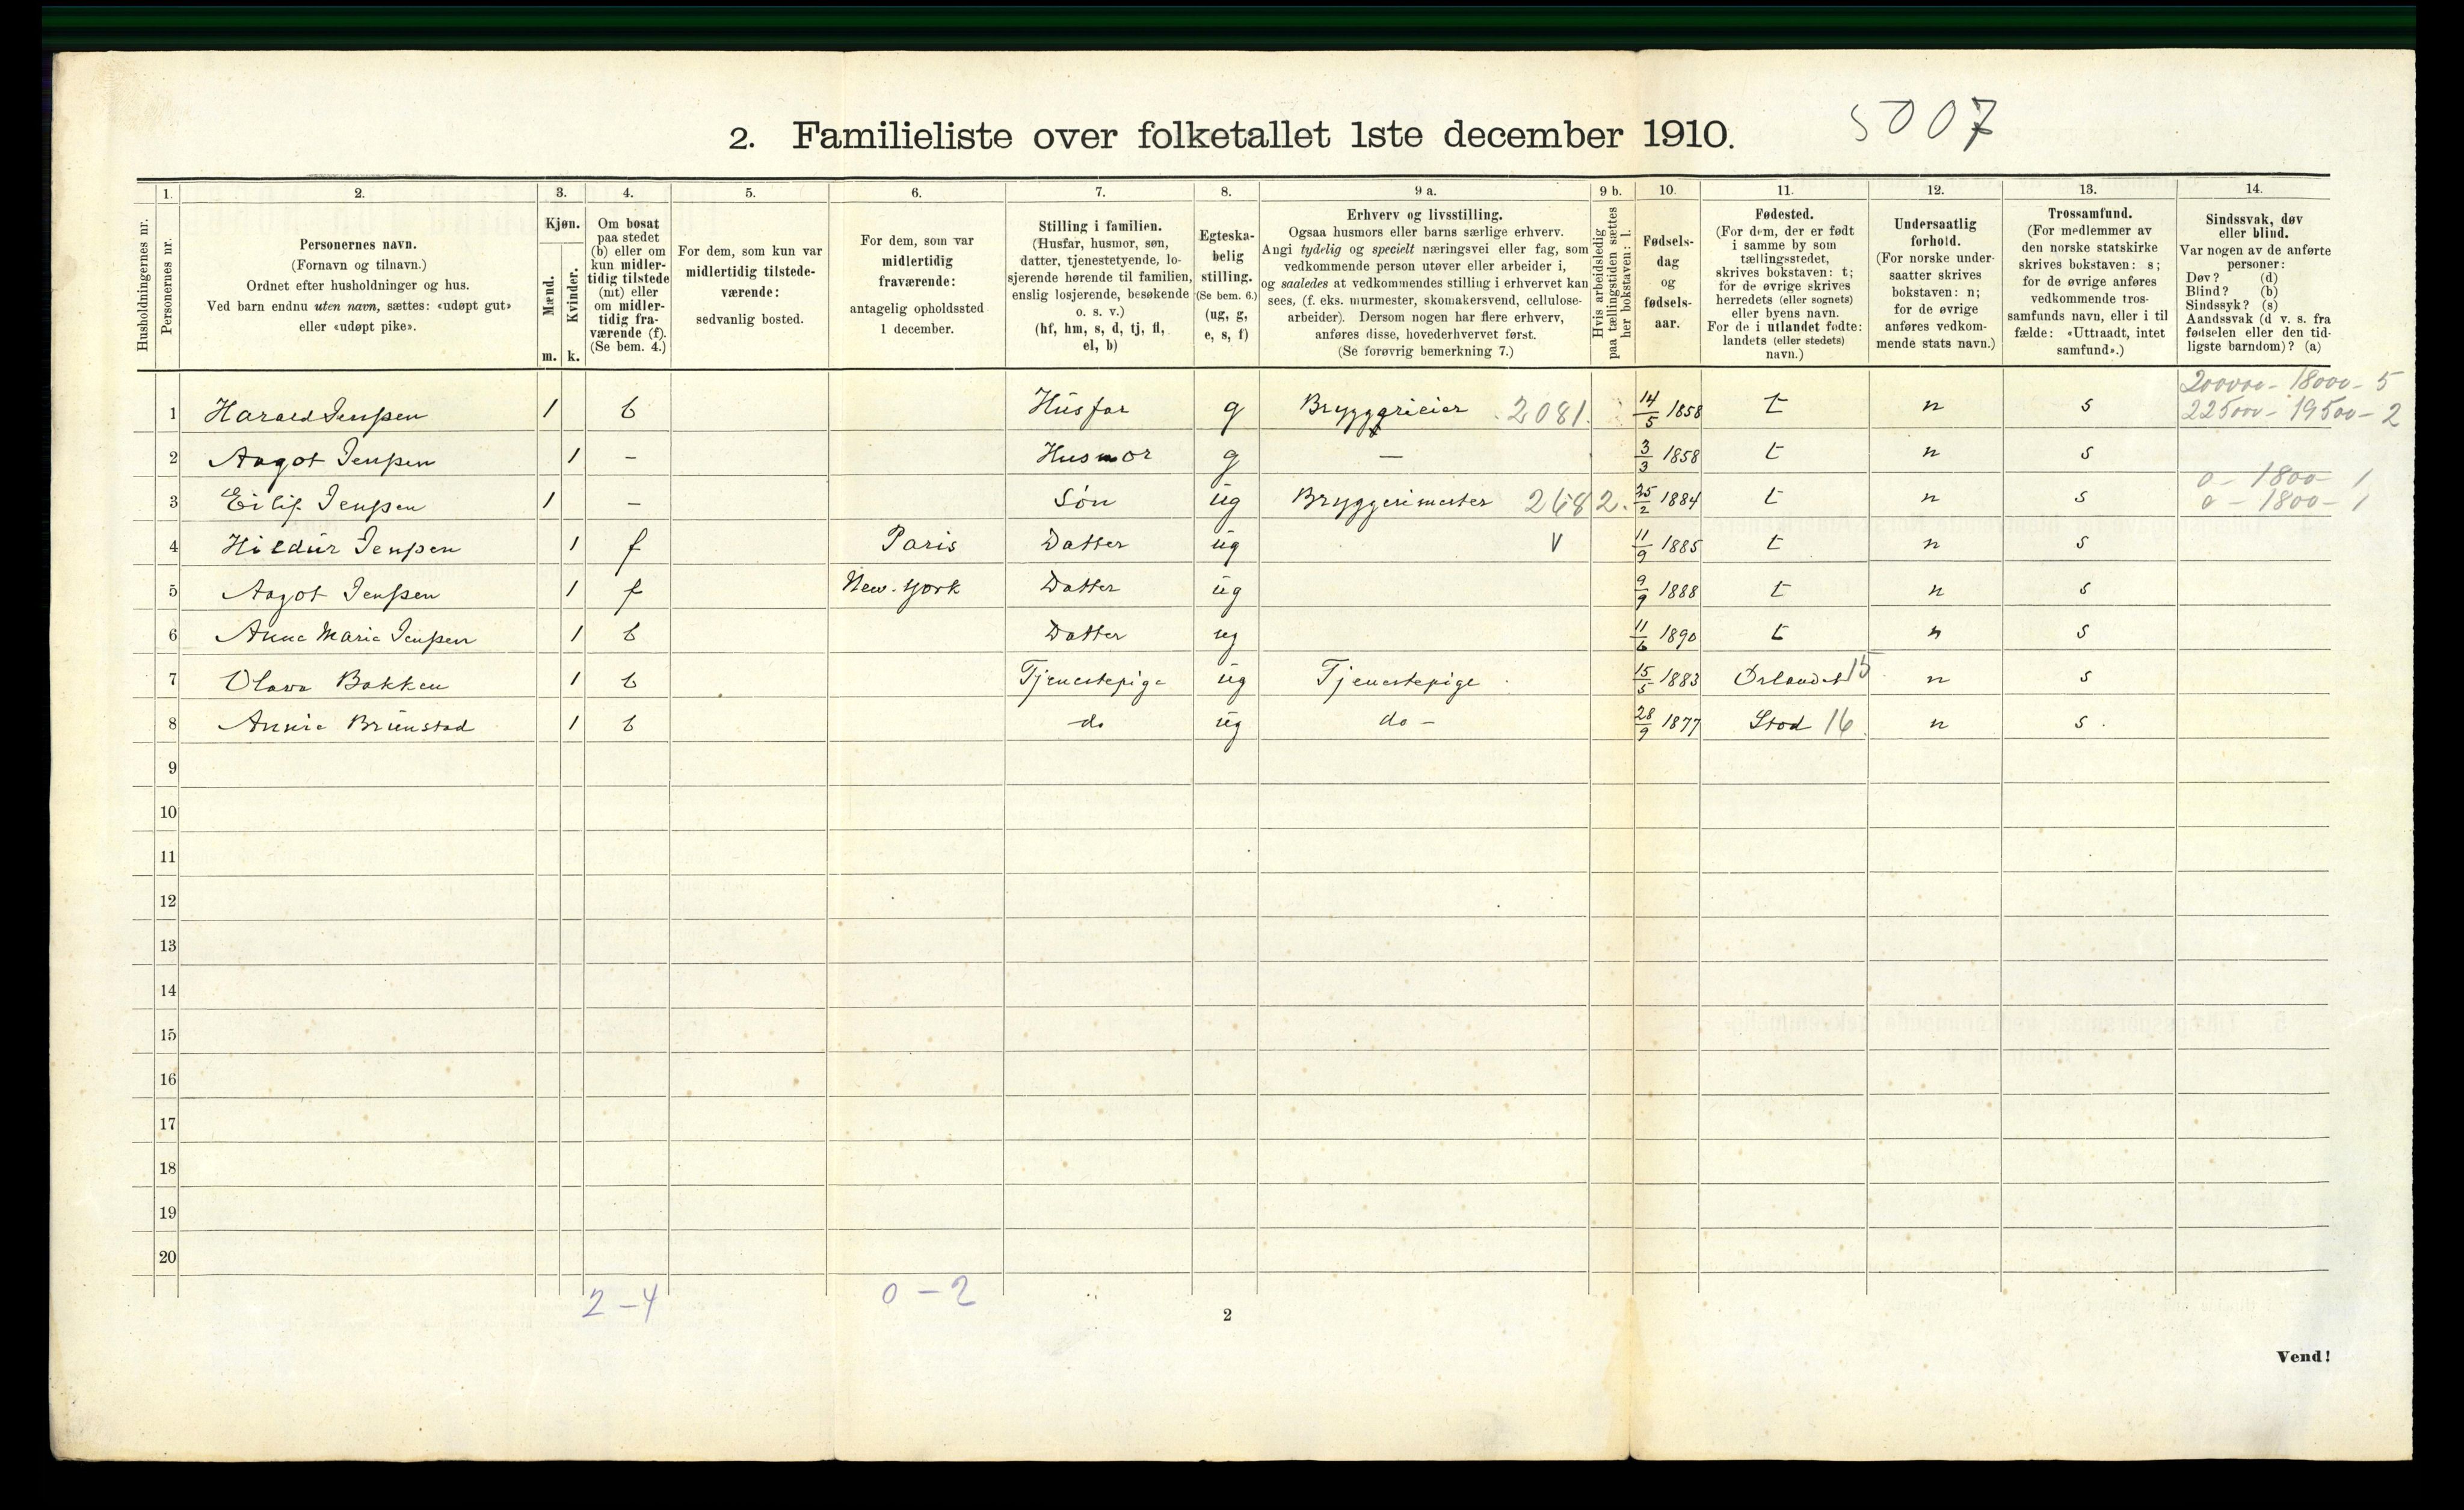 2. Familieliste over folketallet 1ste december 1910. 5007
Husholdningernes nr.
1.
Personernes nr.
2.
Personernes navn.
(Fornavn og tilnavn.)
Ordnet efter husholdninger og hus.
Ved barn endnu uten navn, sættes: «udøpt gut»
eller «udøpt pike».
3.
Kjøn.
Mænd.
m.
Kvinder.
k.
4.
Om bosat
paa stedet
(b) eller om
kun midler-
tidig tilstede
(mt) eller
om midler-
tidig fra-
værende (f).
(Se bem. 4.)
5.
For dem, som kun var
midlertidig tilstede-
værende:
sedvanlig bosted.
6.
For dem, som var
midlertidig
fraværende:
antagelig opholdssted
1 december.
7.
Stilling i familien.
(Husfar, husmor, søn,
datter, tjenestetyende, lo-
sjerende hørende til familien,
enslig losjerende, besøkende
o. s. v.)
(hf, hm, s, d, tj, fl,
el, b)
8.
Egteska-
belig
stilling.
(Se bem. 6.)
(ug, g,
e, s, f)
9 a.
Erhverv og livsstilling.
Ogsaa husmors eller barns særlige erhverv.
Angi tydelig og specielt næringsvei eller fag, som
vedkommende person utøver eller arbeider i,
og saaledes at vedkommendes stilling i erhvervet kan
sees, (f. eks. murmester, skomakersvend, cellulose-
arbeider). Dersom nogen har flere erhverv,
anføres disse, hovederhvervet først.
(Se forøvrig bemerkning 7.)
9 b.
Hvis arbeidsledig
paa tællingstiden sættes
her bokstaven: l.
10.
Fødsels-
dag
og
fødsels-
aar.
11.
Fødested.
(For dem, der er født
i samme by som
tællingsstedet,
skrives bokstaven: t;
for de øvrige skrives
herredets (eller sognets)
eller byens navn.
For de i utlandet fødte:
landets (eller stedets)
navn.)
12.
Undersaatlig
forhold.
(For norske under-
saatter skrives
bokstaven: n;
for de øvrige
anføres vedkom-
mende stats navn.)
13.
Trossamfund.
(For medlemmer av
den norske statskirke
skrives bokstaven: s;
for de øvrige anføres
vedkommende tros-
samfunds navn, eller i til
fælde: «Uttraadt, intet
samfund».)
14.
Sindssvak, døv
eller blind.
Var nogen av de anførte
personer:
Døv? (d)
Blind? (b)
Sindssyk? (s)
Aandssvak (d v. s. fra
fødselen eller den tid-
ligste barndom)? (a)
200000 - 18000 - 5
1 Harald Jenssen 1 b Husfar g Bryggerieier 2081. 14/5 1858 t n s 225000 - 19500 - 2
2 Aagot Jenssen 1 - Husmor g - 3/3 1858 t n s
0 - 1800 - 1
3 Eilif Jenssen 1 - Søn ug Bryggerimester 2682. 25/2 1884 t n s 0 - 1800 - 1
4 Hildur Jenssen 1 f Paris Datter ug V 11/9 1885 t n s
5 Aagot Jenssen 1 f New-York Datter ug 9/9 1888 t n s
6 Anna Marie Jenssen 1 b Datter ug 11/6 1890 t n s
7 Olava Bakken 1 b Tjenestepige ug Tjenestepige 15/5 1883 Ørlandet 15 n s
8 Annie Brunstad 1 b do ug do - 28/9 1877 Stod 16 n s.
9
10
11
12
13
14
15
16
17
18
19
20
2 - 4 0 - 2
2
Vend!